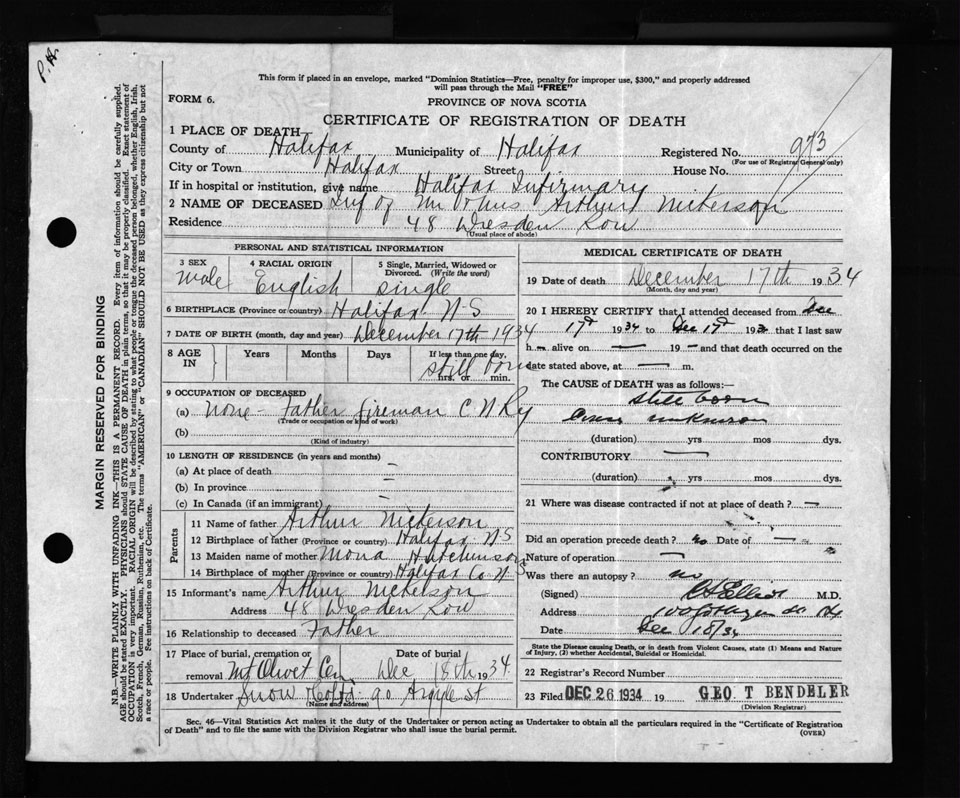 P.H.
This form if placed in an envelope, marked "Dominion Statistics—Free, penalty for improper use, $300," and properly addressed
will pass through the Mail "FREE"
FORM 6.
PROVINCE OF NOVA SCOTIA
CERTIFICATE OF REGISTRATION OF DEATH
1 PLACE OF DEATH—
County of Halifax Municipality of Halifax Registered No. 973
(For use of Registrar General only)
City or Town Halifax Street House No.
If in hospital or institution, give name Halifax Infirmary
2 NAME OF DECEASED Inf of Mr & Mrs Arthur Nickerson
Residence 48 Dresden Row
(Usual place of abode)
PERSONAL AND STATISTICAL INFORMATION
3 SEX 4 RACIAL ORIGIN 5 Single, Married, Widowed or
Divorced. (Write the word)
Male English Single
6 BIRTHPLACE (Province or country) Halifax N-S
7 DATE OF BIRTH (month, day and year) December 17th 1934
8 AGE IN Years Months Days If less than one day,
still born hrs. or min.
9 OCCUPATION OF DECEASED
(a) None - Father fireman C N Ry
(Trade or occupation or kind of work)
(b)
(Kind of industry)
10 LENGTH OF RESIDENCE (in years and months)
(a) At place of death —
(b) In province —
(c) In Canada (if an immigrant) —
Parents
11 Name of father Arthur Nickerson
12 Birthplace of father (Province or country) Halifax N-S
13 Maiden name of mother Mona Hutchinson
14 Birthplace of mother (Province or country) Halifax Co N S
15 Informant's name Arthur Nickerson
Address 48 Dresden Row
16 Relationship to deceased Father
17 Place of burial, cremation or removal Date of burial
Mt Olivet Cem Dec 18th 1934
18 Undertaker Snow 90 Argyle St
(Name and address)
MEDICAL CERTIFICATE OF DEATH
19 Date of death December 17th 1934
(Month, day and year)
20 I HEREBY CERTIFY that I attended deceased from Dec
17th 1934 to Dec 17th 193 that I last saw
h— alive on — 19 — and that death occurred on the
date stated above, at — m.
The CAUSE of DEATH was as follows:—
Still born
Cause unknown
(duration) yrs mos dys.
CONTRIBUTORY —
(duration) yrs mos dys.
21 Where was disease contracted if not at place of death? —
Did an operation precede death? no Date of —
Nature of operation —
Was there an autopsy? no
(Signed) Elliott M.D.
Address 100 Gottingen St Hx
Date Dec 18/34
State the Disease causing Death, or in death from Violent Causes, state (1) Means and Nature
of Injury, (2) whether Accidental, Suicidal or Homicidal.
22 Registrar's Record Number
23 Filed DEC 26 1934 19 GEO. T BENDELER
(Division Registrar)
Sec. 46—Vital Statistics Act makes it the duty of the Undertaker or person acting as Undertaker to obtain all the particulars required in the "Certificate of Registration
of Death" and to file the same with the Division Registrar who shall issue the burial permit.
(OVER)
MARGIN RESERVED FOR BINDING
N.B.—WRITE PLAINLY WITH UNFADING INK—THIS IS A PERMANENT RECORD. Every item of information should be carefully supplied.
AGE should be stated EXACTLY. PHYSICIANS should STATE CAUSE OF DEATH in plain terms, so that it may be properly classified. Exact statement of
OCCUPATION is very important. RACIAL ORIGIN will be described by stating to what people or tongue the deceased person belonged, whether English, Irish,
Scotch, French, German, Russian, Ruthenian, etc. The terms "AMERICAN" or "CANADIAN" SHOULD NOT BE USED as they express citizenship but not
a race or people. See instructions on back of Certificate.